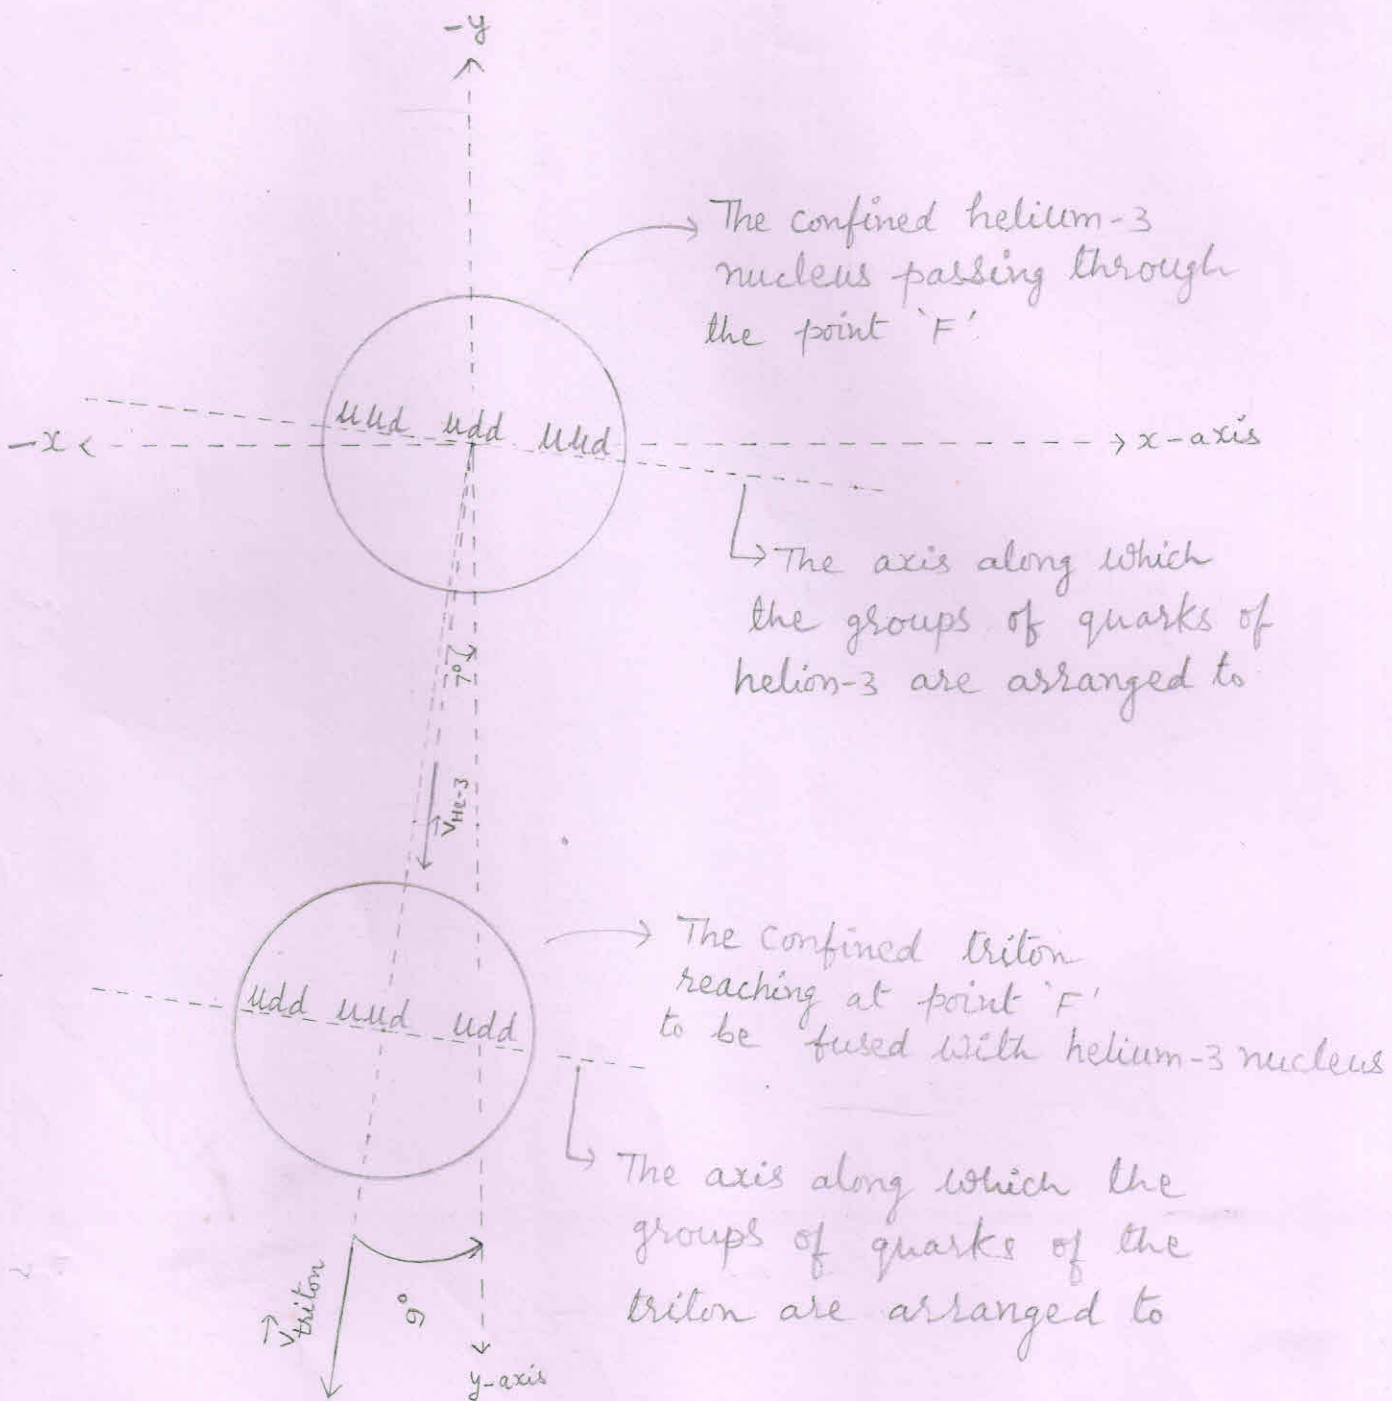 -y
The confined helium-3
nucleus passing through
the point 'F'
uud udd uud
-x
x-axis
The axis along which
the groups of quarks of
helion-3 are arranged to
7°
V He-3
The confined triton
reaching at point 'F'
to be fused with helium-3 nucleus
udd uud udd
The axis along which the
groups of quarks of the
triton are arranged to
V triton
9°
y-axis